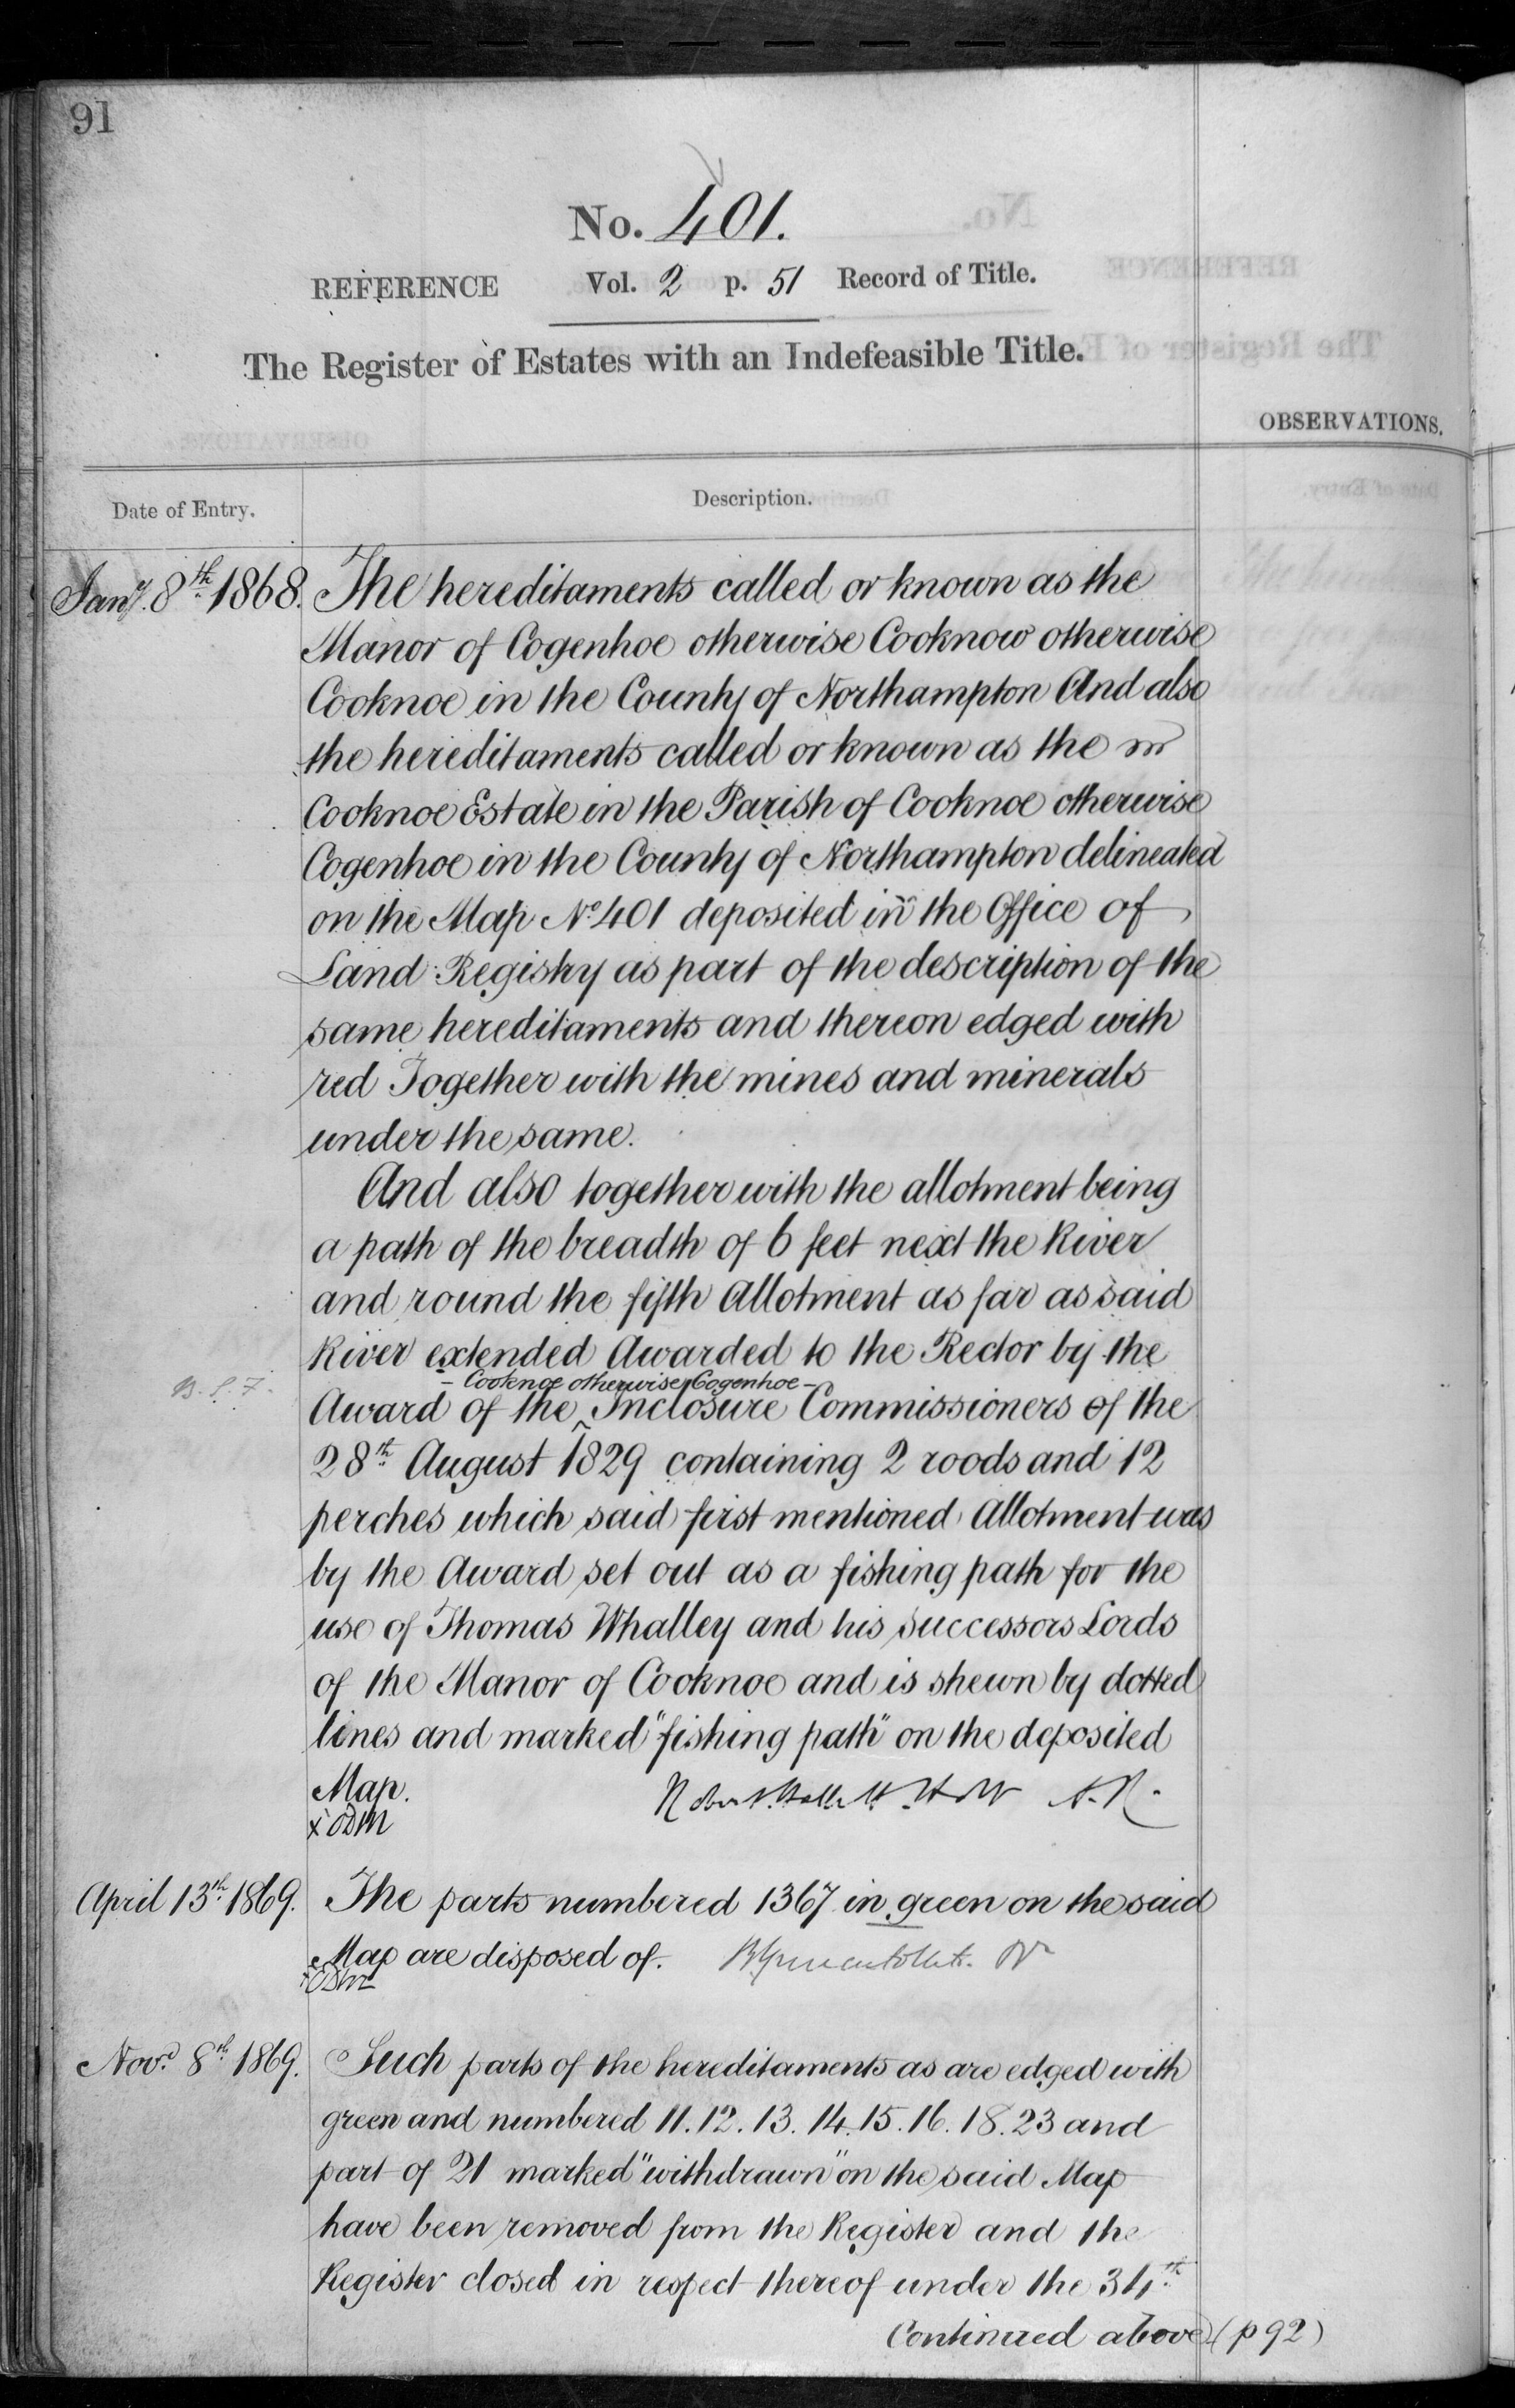 91
No. 401.
REFERENCE Vol. 2 p. 51 Record of Title.
The Register of Estates with an Indefeasible Title.
OBSERVATIONS.
Date of Entry. Description.
Jany. 8th 1868. The hereditaments called or known as the
Manor of Cogenhoe otherwise Cooknow otherwise
Cooknoe in the County of Northampton And also
the hereditaments called or known as the
Cooknoe Estate in the Parish of Cooknoe otherwise
Cogenhoe in the County of Northampton delineated
on the Map No. 401 deposited in the Office of
Land Registry as part of the description of the
same hereditaments and thereon edged with
red Together with the mines and minerals
under the same.
And also together with the allotment being
a path of the breadth of 6 feet next the River
and round the fifth Allotment as far as said
River extended Awarded to the Rector by the
- Cooknoe otherwise Cogenhoe -
Award of the ^ Inclosure Commissioners of the
28th August 1829 containing 2 roods and 12
perches which said first mentioned Allotment was
by the Award set out as a fishing path for the
use of Thomas Whalley and his successors Lords
of the Manor of Cooknoe and is shewn by dotted
lines and marked "fishing path" on the deposited
Map.
April 13th 1869. The parts numbered 1367 in green on the said
Map are disposed of.
Novr. 8th 1869. Such parts of the hereditaments as are edged with
green and numbered 11. 12. 13. 14. 15. 16. 18. 23 and
part of 21 marked "withdrawn" on the said Map
have been removed from the Register and the
Register closed in respect thereof under the 34th
Continued above (p 92)